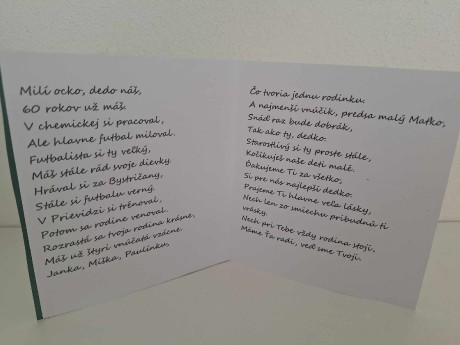 Milí ocko, dedo náš,
60 rokov už máš.
V chemickej si pracoval,
Ale hlavne futbal miloval.
Futbalista si ty veľký,
Máš stále rád svoje dievky.
Hrával si za Bystričany,
Stále si futbalu verný.
V Prievidzi si trénoval,
Potom sa rodine venoval.
Rozrastá sa tvoja rodina krásne,
Máš už štyri vnúčatá vzácne.
Janka, Miška, Paulínku,
Čo tvoria jednu rodinku.
A najmenší vnúčik, predsa malý Maťko,
Snáď raz bude dobrák,
Tak ako ty, dedko.
Starostlivý si ty proste stále,
Kolíkuješ naše deti malé.
Ďakujeme Ti za všetko,
Si pre nás najlepší dedko.
Prajeme Ti hlavne veľa lásky,
Nech len zo smiechu pribudnú ti
vrásky.
Nech pri Tebe vždy rodina stojí,
Máme Ťa radi, veď sme Tvoji.